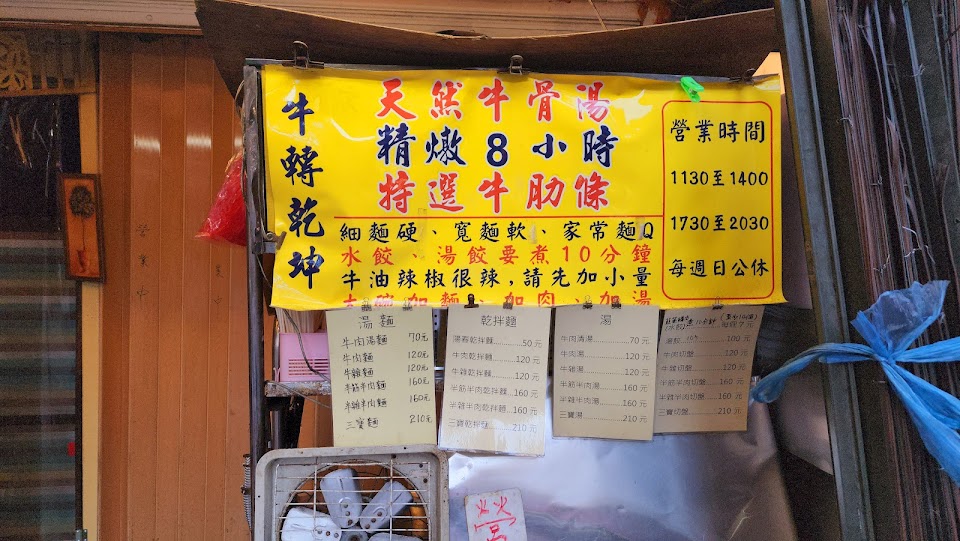 牛轉乾坤
天然牛骨湯
精燉8小時
特選牛肋條
細麵硬、寬麵軟、家常麵Q
水餃、湯餃要煮10分鐘
牛油辣椒很辣,請先加小量
加麵、加肉、加湯
營業時間
1130至1400
1730至2030
每週日公休
湯麵
牛肉湯麵 70元
牛肉麵 120元
牛雜麵 120元
半筋半肉麵 160元
半雜半肉麵 160元
三寶麵 210元
乾拌麵
陽春乾拌麵......50元
牛肉乾拌麵......120元
牛雜乾拌麵......120元
半筋半肉乾拌麵....160元
半雜半肉乾拌麵....160元
三寶乾拌麵......210元
湯
牛肉清湯......70元
牛肉湯......120元
牛雜湯......120元
半筋半肉湯......160元
半雜半肉湯......160元
三寶湯......210元
湯餃 100元
牛肉切盤......120元
牛雜切盤......120元
半筋半肉切盤....160元
半雜半肉切盤....160元
三寶切盤......210元
營業中